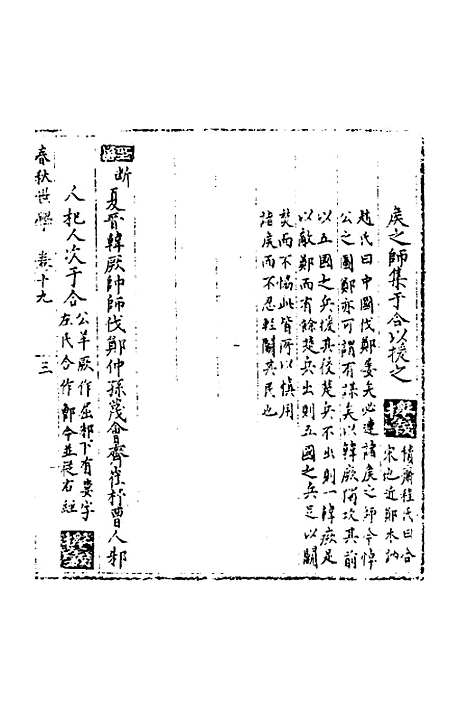 侯之師集于合以援之
釋義
積齋程氏曰合
宋也近鄭木訥
趙氏曰中國伐鄭屡矣必連諸侯之師今悼
公之圖鄭亦可謂有謀矣以韓厥偏攻其前
以五國之兵援其後楚兵不出則一韓厥足
以敵鄭而有餘楚兵出則五國之兵足以鬭
楚而不惕此皆所以慎用
諸侯而不忍輕鬭其民也
經
斷夏晉韓厥帥師伐鄭仲孫蔑會齊崔杼曹人邾
人杞人次于合
公羊厥作屈邾下有婁字
左氏合作鄫今並從右經
釋義
春秋世學 卷十九 三